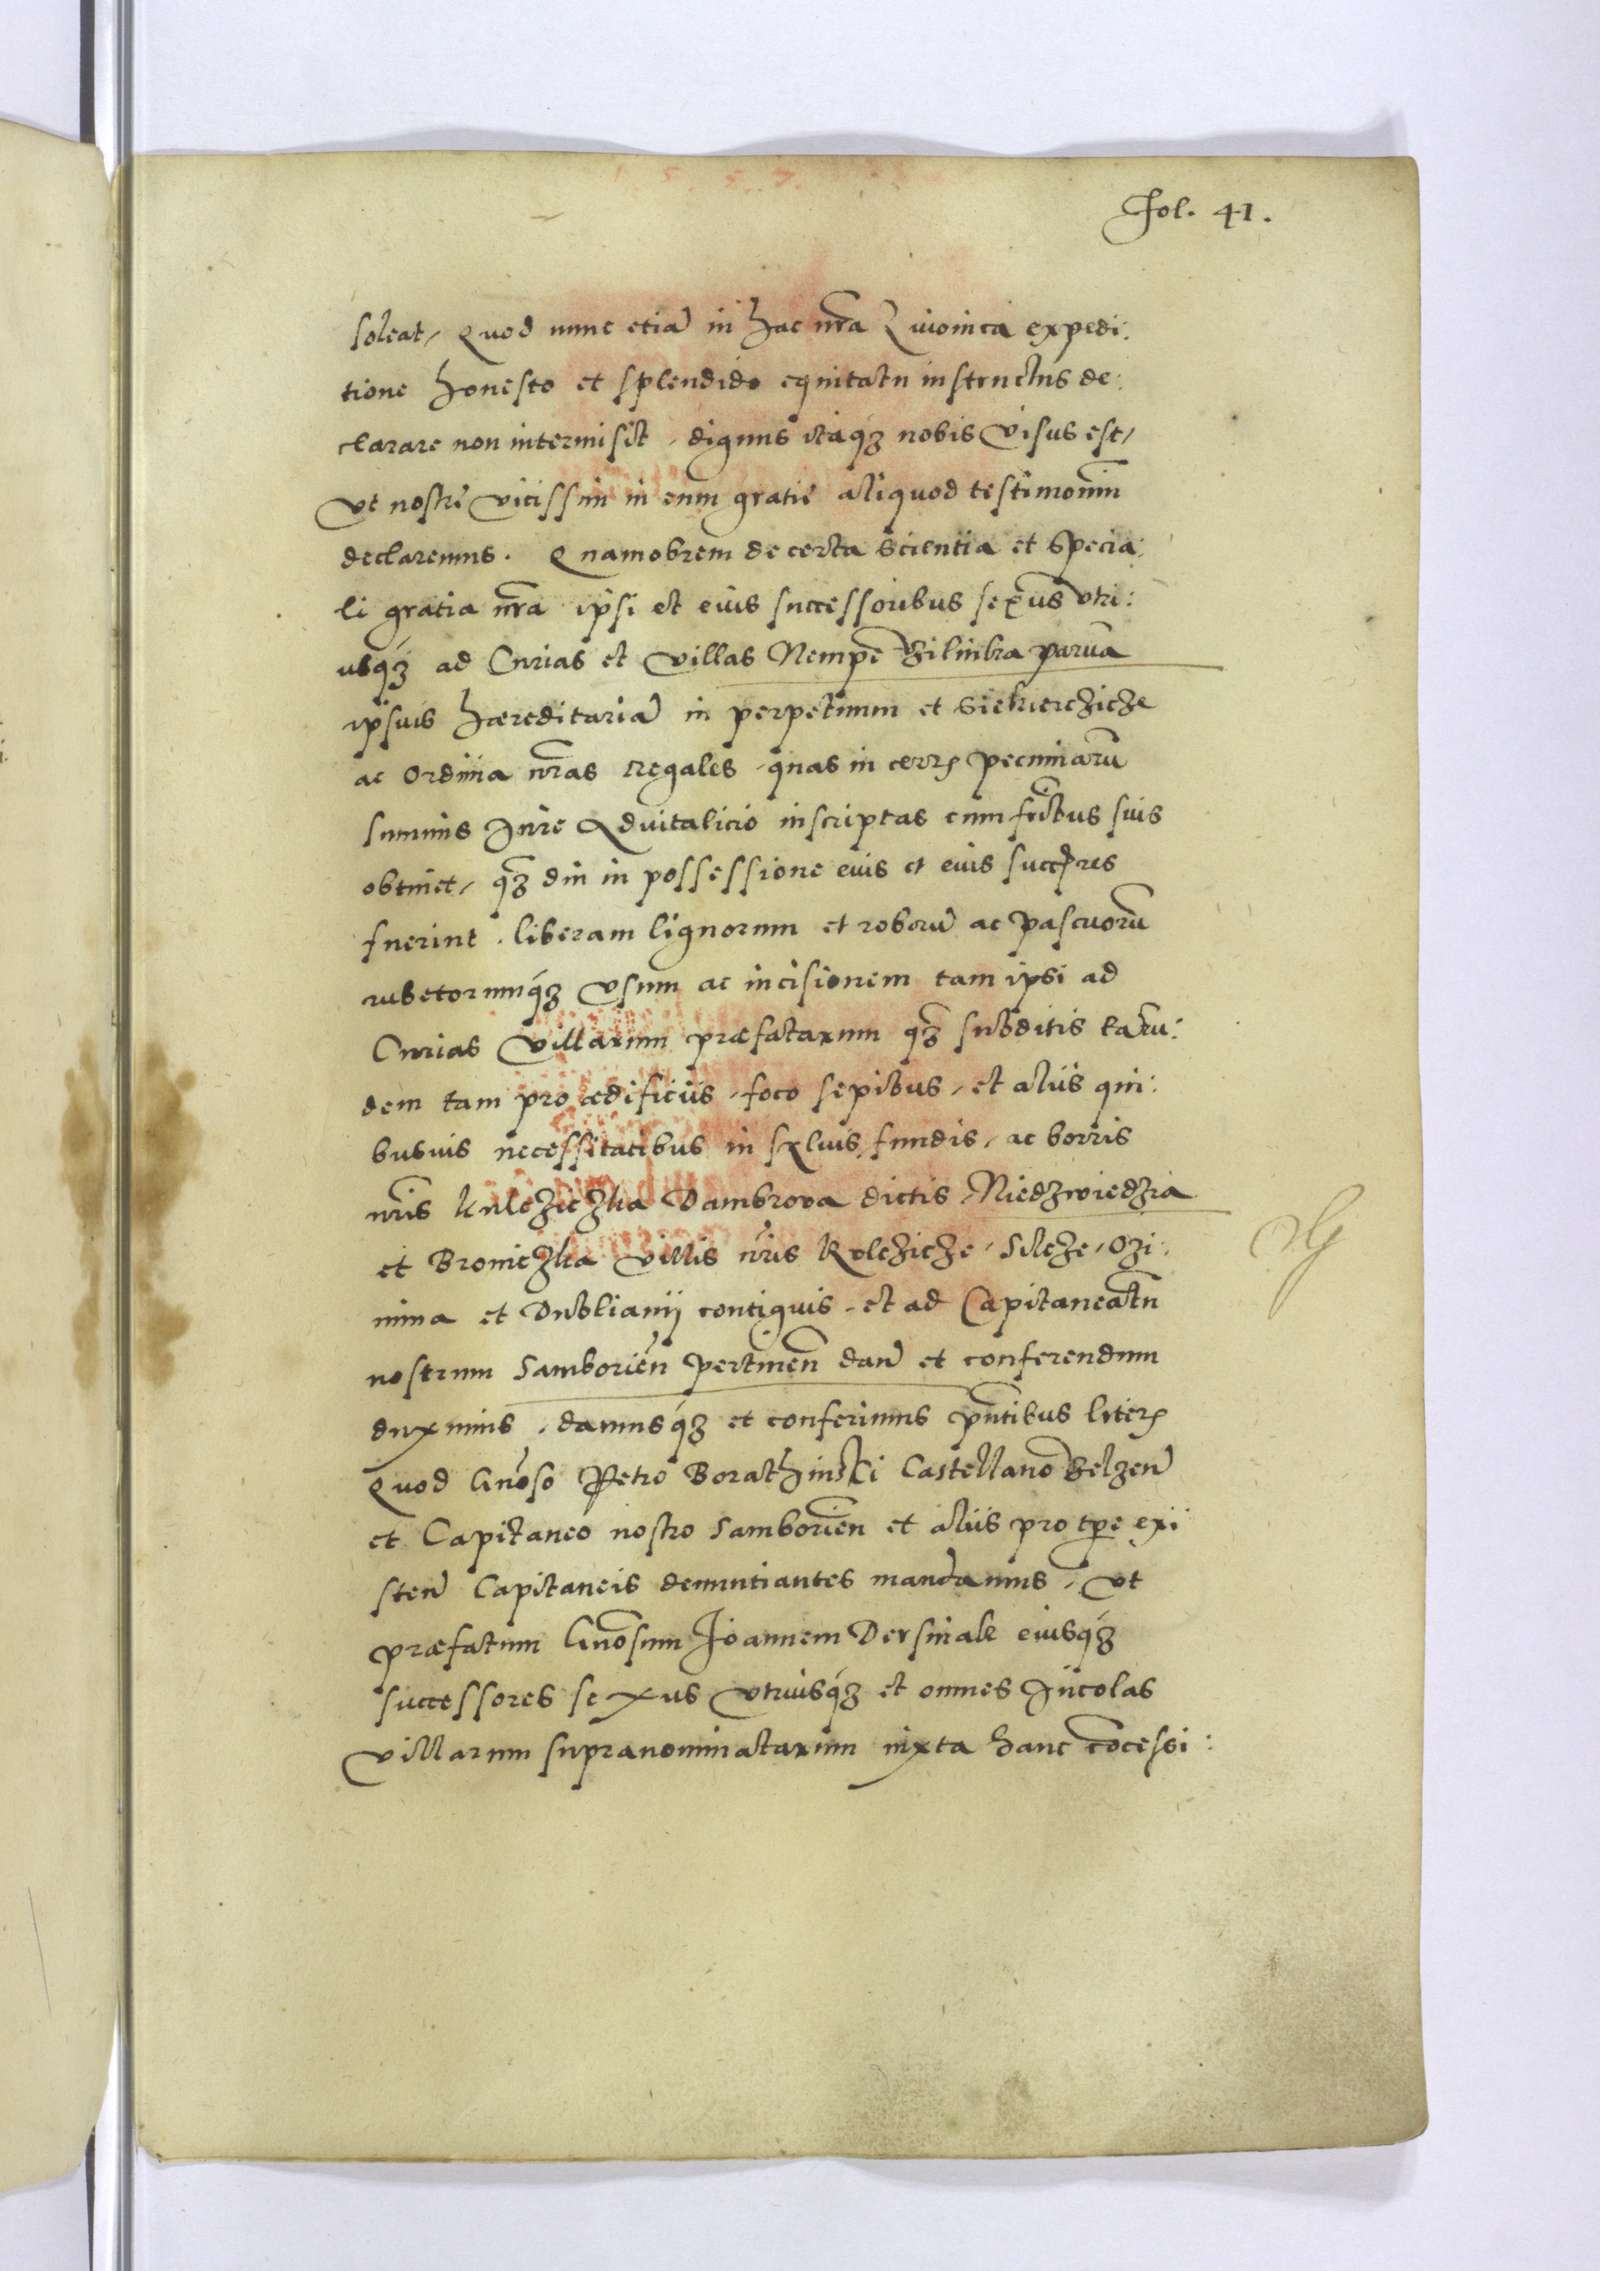 Fol. 41.
soleat, Quod nunc etiã in hac nr̃a Liuonica expedi:
tione honesto et splendido equitatu instructus de:
clarare non intermisit, dignus itaq́ꝫ nobis visus est,
Vt nostrę vicissim in eum gratię aliquod testimoniũ
declaremus. Quamobrem de certa scientia et specia:
li gratia nr̃a ipsi et eius successoribus sexus vtri:
usq́ꝫ ad Curias et Villas Nempe Bilinka paruã
ipsius hæreditariã in perpetuum et Siekierczicze
ac Ordinia nr̃as regales, quas in certis pecuniarũ
summis Jure Aduitalicio inscriptas cum fratribus suis
obtinet, qꝫ diu in possessione eius et eius succr̃es
fuerint, liberam lignorum et roborũ ac pascuorũ
rubetorumq́ꝫ Vsum ac incisionem tam ipsi ad
Curias Villarum præfatarum qꝫ subditis earun:
dem tam pro ædificiis, foco sepibus, et aliis qui:
busuis necessitatibus in syluis, fundis, ac borris
nr̃is Kulcziczka Dambrova dictis Niedzwiedzia
et Broniczka Villis nr̃is Kulczicze, Silcze, Ozi:
mina et Dublianÿ contiguis, et ad Capitaneatũ
nostrum Samborieñ pertineñ dañ et conferendum
duximus, damusq́ꝫ et conferimus pñtibus literis
Quod Gñoso Petro Borathinski Castellano Belzeñ
et Capitaneo nostro Samborieñ et aliis pro tpe exi
steñ Capitaneis denuntiantes mandamus, Vt
præfatum Gñosum Joannem Dersniak eiusq́ꝫ
successores sexus Vtriusq́ꝫ et omnes Jncolas
Villarum supranominatarum iuxta hanc cõcessi: